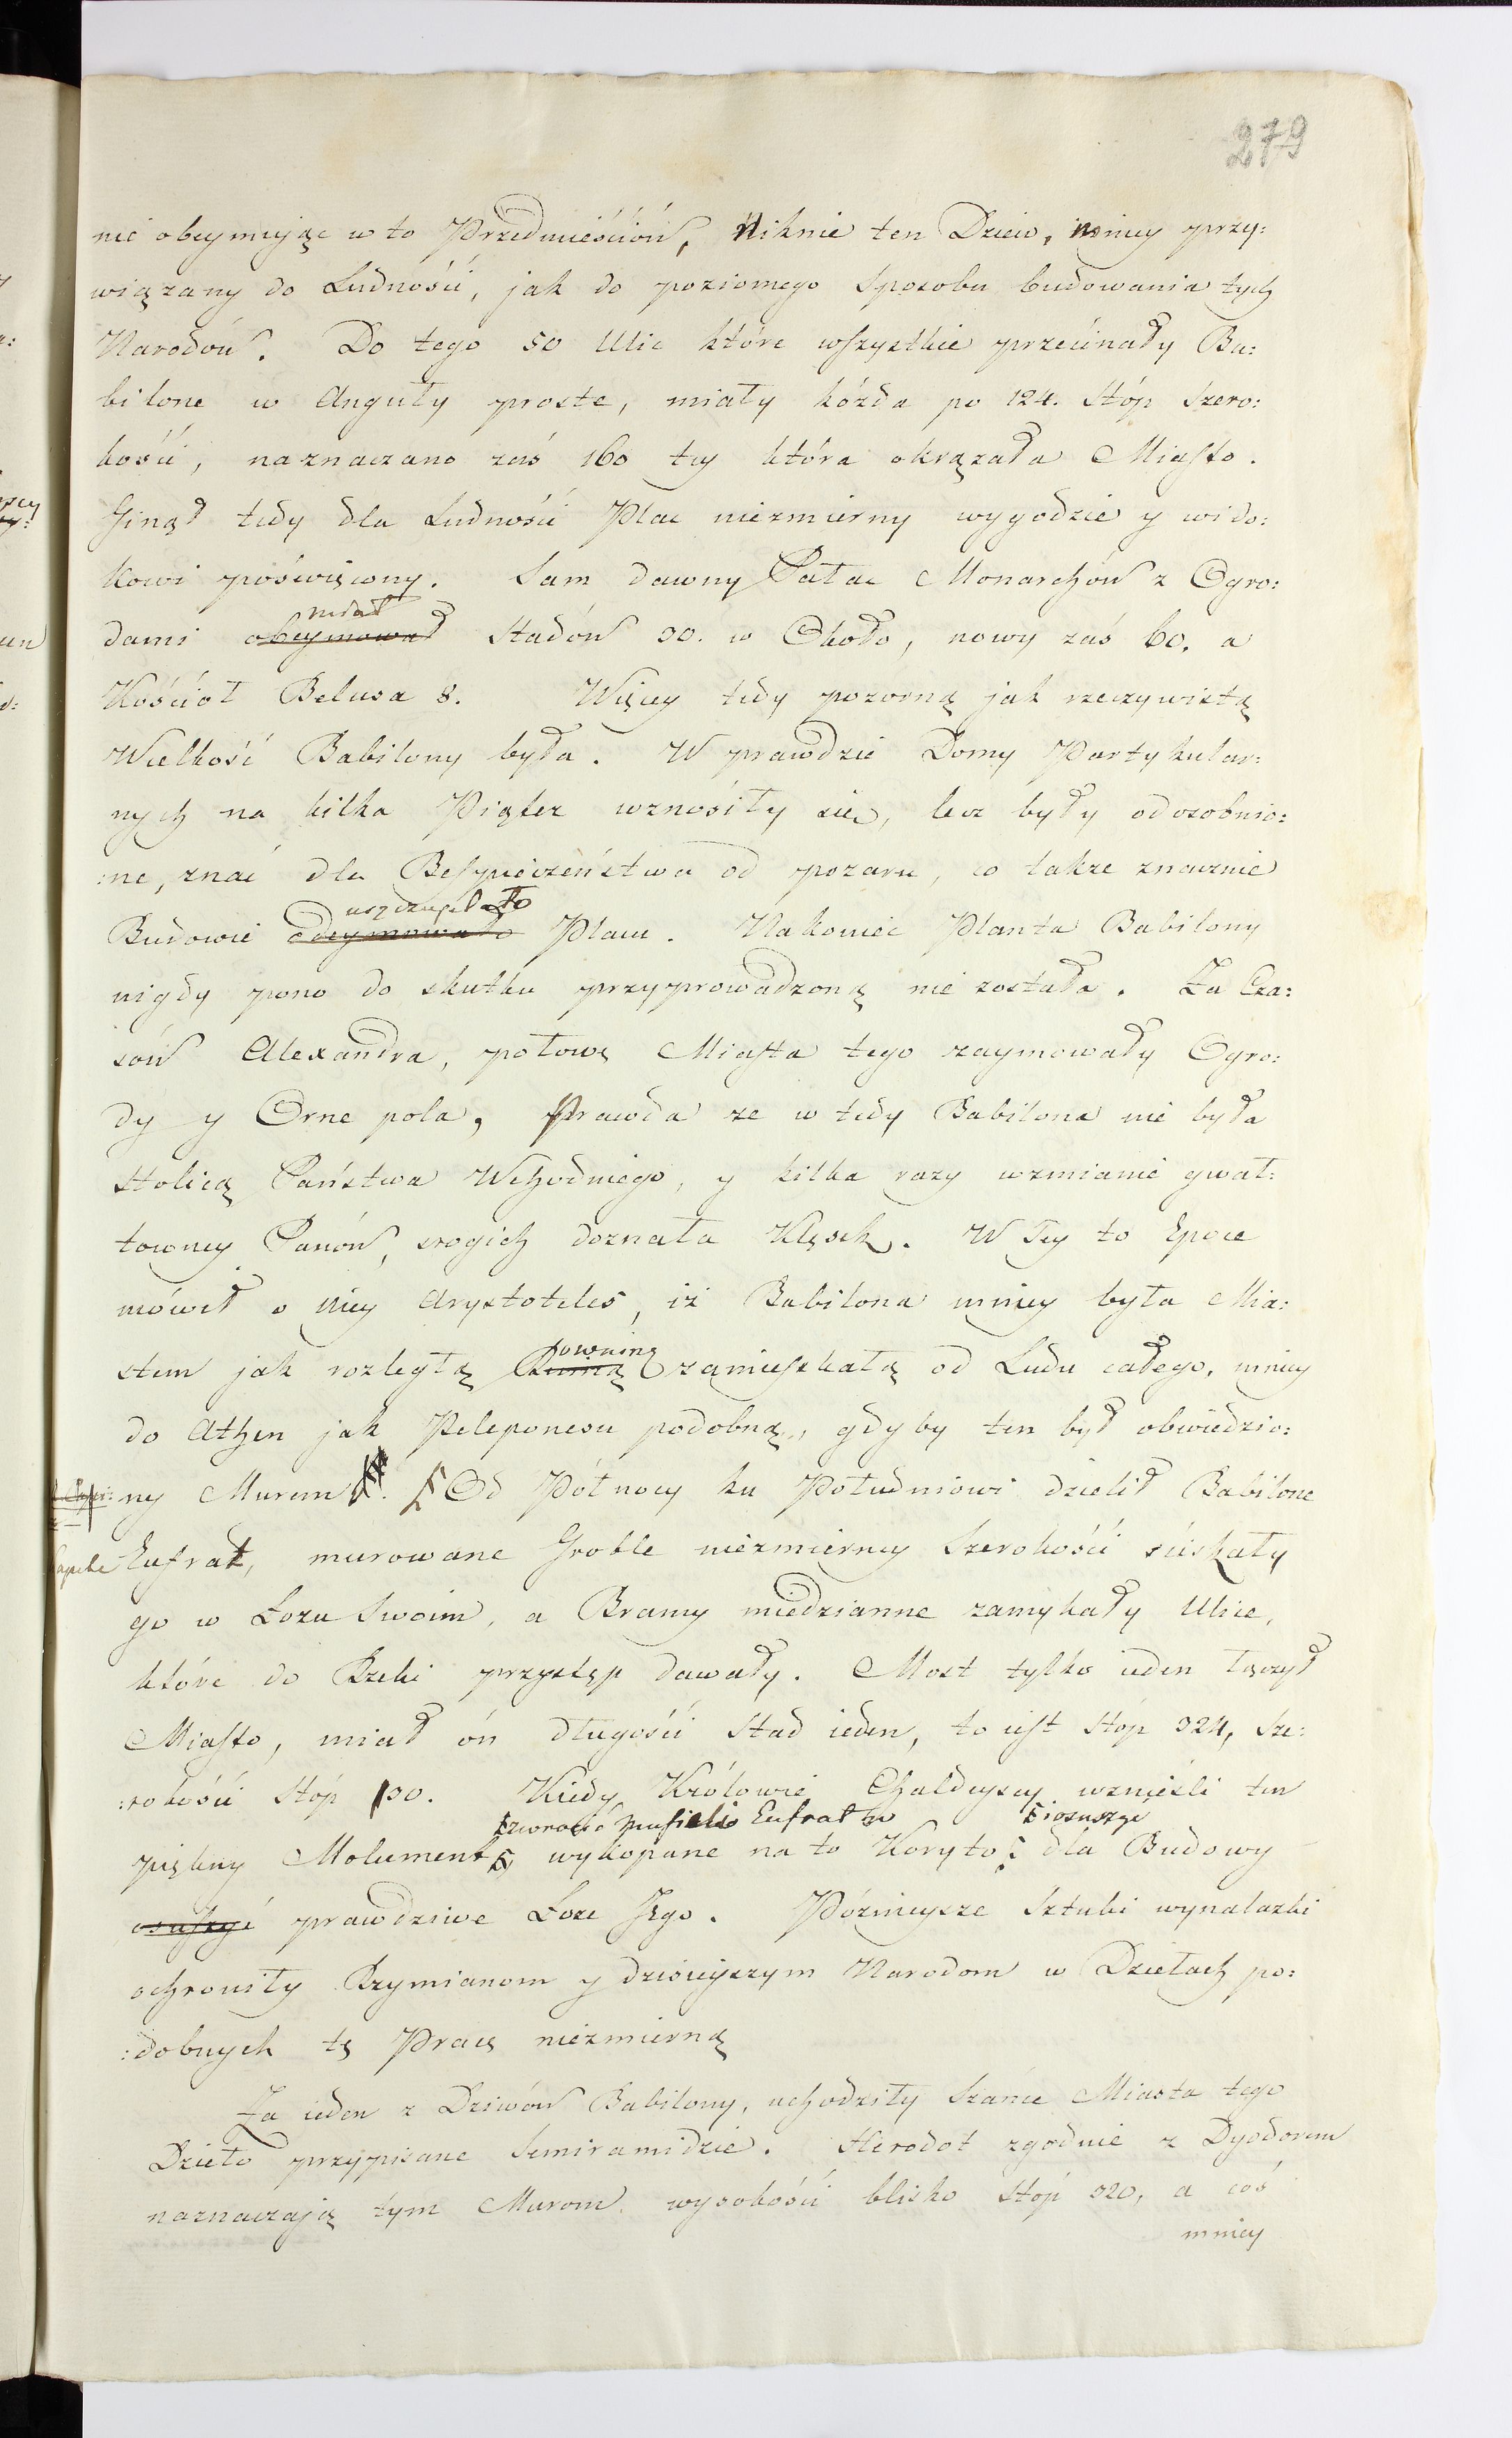 279
nie obeymując w to Przedmieściów, Niknie ten Dziw, mniey przy:
wiązany do Ludności, jak do poziomego Sposobu budowania tych
Narodów. Do tego 50 Ulic które wszystkie przecinały Ba:
bilone w Anguły proste, miały kóżda po 124. Stóp Szero:
kości, naznaczano zaś 160 tey która okrązała Miasto.
Ginął tedy dla Ludności Plac niezmierny wygodzie y wido:
kowi poświęcony. Sam dawny Pałac Monarchów z Ogro:
miał
dami obeymował Stadów 30. w Około, nowy zaś 60. a
Kościoł Belusa 8. Więcey tedy pozorną jak rzeczywistą
Wielkość Babilony była. W prawdzie Domy Partykular:
nych na kilka Piąter wznosiły się, lecz były odosobnio:
:ne, znać dla Bespieczeństwa od pozaru, co takze znacznie
uszczuplało
Budowie odeymowało Placu. Nakoniec Planta Babilony
nigdy pono do skutku przyprowadzoną nie została. Za Cza:
sów Alexandra, połowę Miasta tego zaymowały Ogro:
dy y Orne pola, Prawda ze w tedy Babilona nie była
Stolicą Państwa Wschodniego, y kilka razy w zmianie gwał:
towney Panów, srogich doznała Klęsk. W Tey to Epoce
mówił o niey Arystoteles, iż Babilona mniey była Mia:
rowniną
stem jak rozległą Ruiną zamieszkałą od Ludu całego, mniey
do Athen jak Peleponesu podobną, gdyby ten był obwiedzio:
ny Murem. Od Północy ku Południowi dzielił Babilone
Eufrat, murowane Groble niezmierney Szerokości ściskały
go w Łozu Swoim, a Bramy miedzianne zamykały Ulice,
które do Rzeki przystęp dawały. Most tylko ieden łączył
Miasto, miał ón długości Stad ieden, to iest Stóp 324, Sze:
:rokości Stóp 30. Kiedy Królowie Chaldeyscy wznieśli ten
zwrocić musieli Eufrat w iosuszyć
piękny Molument, wykopane na to Koryto dla Budowy
osuszyć prawdziwe Łoze Jego. Póznieysze Sztuki wynalazki
ochroniły Rzymianom y dzisieyszym Narodom w Dziełach po:
:dobnych tę Pracę niezmierną
Za ieden z Dziwów Babilony, uchodziły Szańce Miasta tego
Dzieło przypisane Semiramidzie. Herodot zgodnie z Dyodorem
naznaczają tym Murom wysokości blisko Stóp 320, a coś
mniey